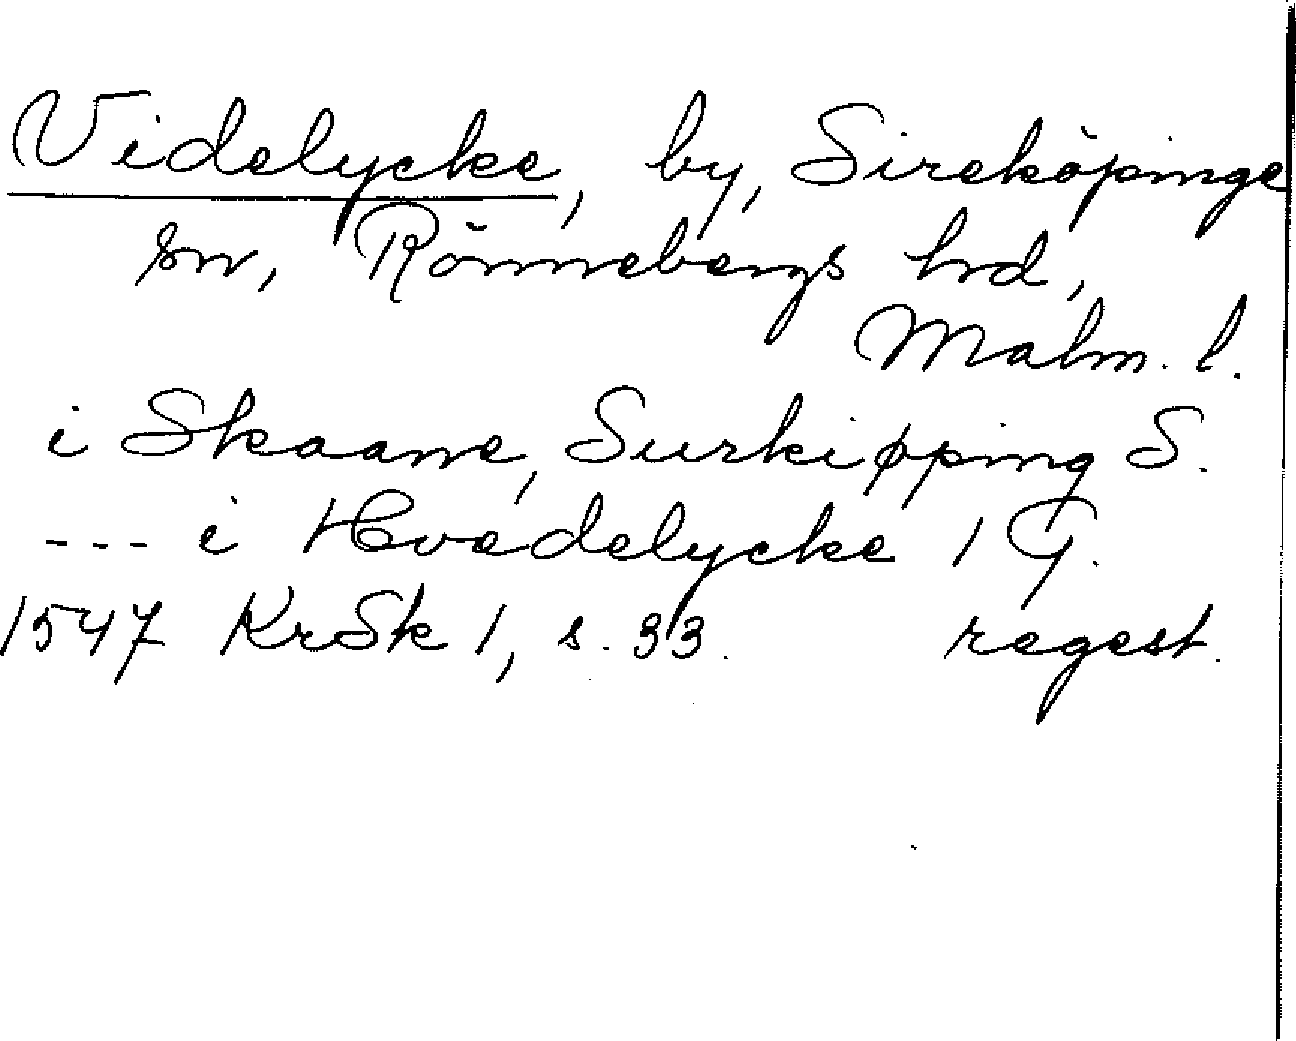 Videlycke, by, Sireköpinge
sn, Rönnebergs hrd,
Malm. l.
i Skaane, Surkiøping S.
--- i Hvedelycke 1 G.
1547 KrSk 1, s. 33. regest.